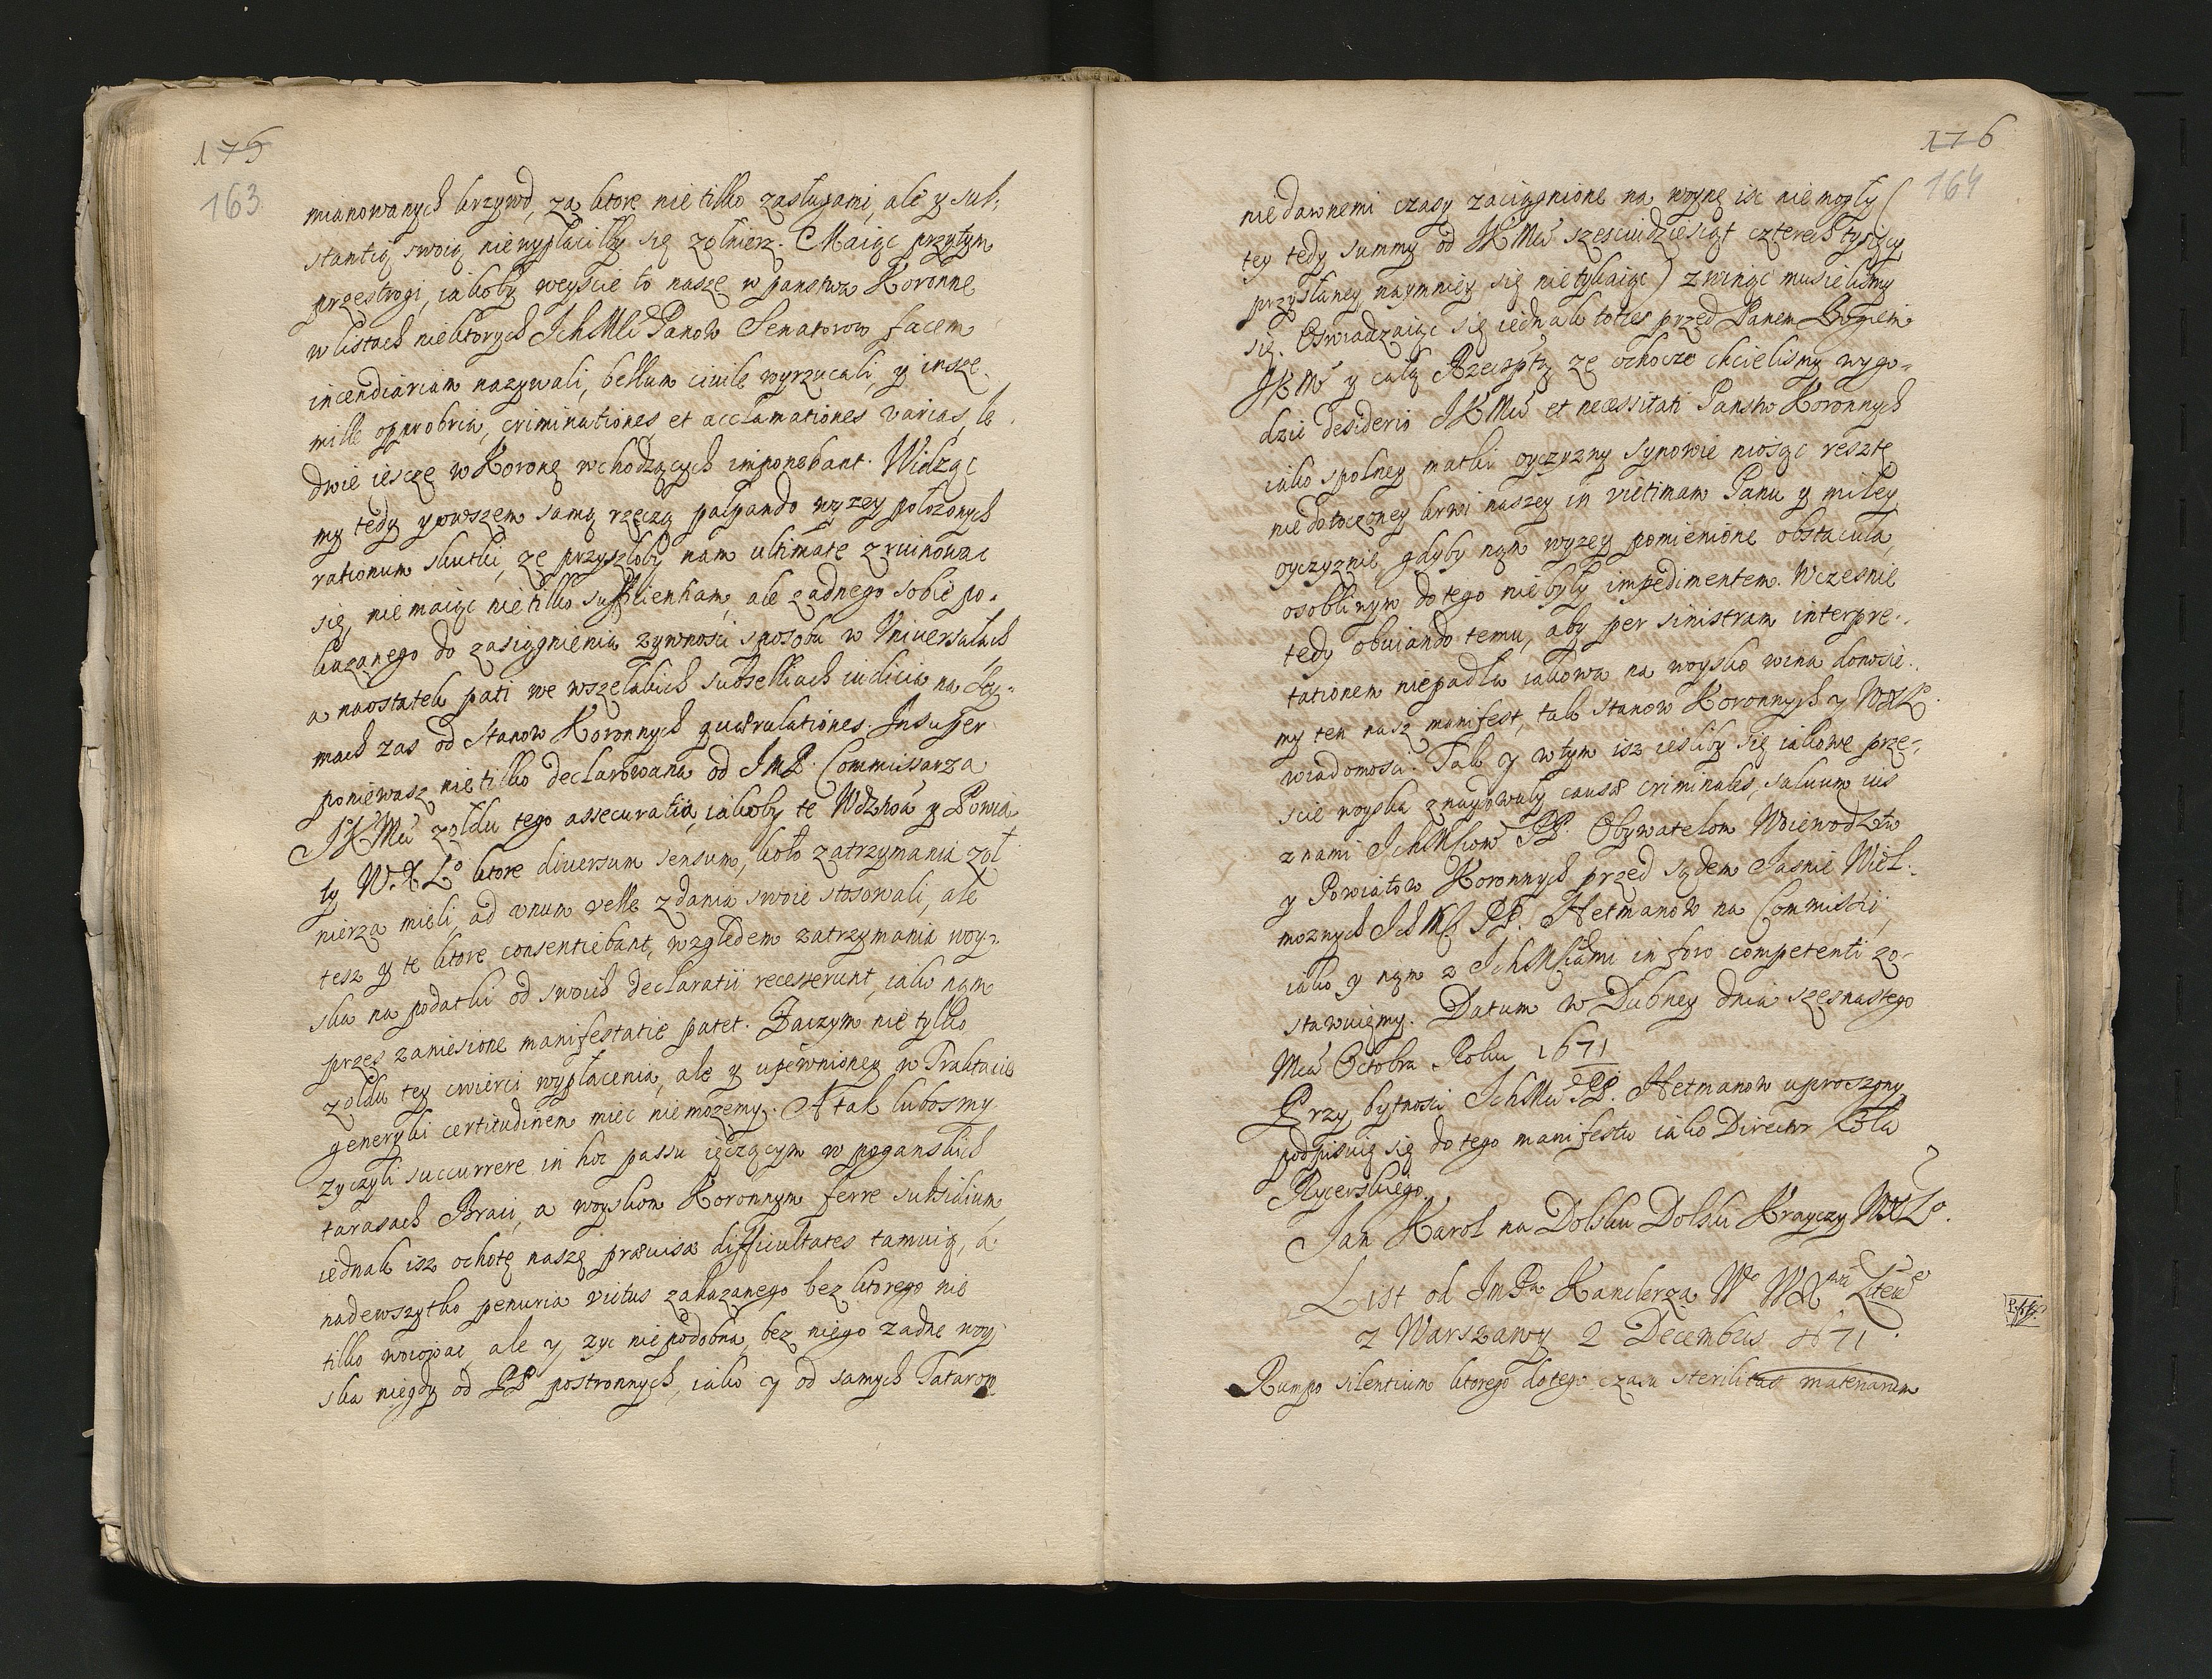 175
163
mianowanych krzywd, za ktore nie tilko zasługami, ale y sub,
stantią swoią niewypłaciłby się zołnierz. Maiąc przytym
przestrogi, iakoby weyscie to nasze w panstwa Koronne
w listach niektorych IchMci Panow Senatorow facem
incendiariam nazywali, bellum civile wyrzucali, y insze
mille opprobria, criminationes et acclamationes varias, le
dwie iescze w Koronę wchodzących imponebant. Widząc
my tedy ywwszem samą rzeczą palpando wyzey połozonych
rationum skutki, ze przyszłoby nam ultimate zruinowac
się, nie maiąc nie tilko sufficienham, ale zadnego sobie po,
kazanego do zasiągnienia zywnosci sposobu w Vniversałach
a naostatek pati we wszelakich subselliach iudicia na Sey,
mach zas od Stanow Koronnych quærulationes. Insuper
poniewasz nie tilko declarowana od ImP. Commissarza
JKMci zołdu tego assecuratia, iakoby te Wdztwa y Powia
ty W.X.Lo ktore diversum sensum, koło zatrzymania zoł
nierza mieli, ad vnum velle zdania swoie stosowali, ale
tesz y te ktore consentiebant, względem zatrzymania woy,
ska na podatki od swoich declaratii recesserunt, iako nam
przez zaniesione manifestatie patet. Zaczym nie tylko
zołdu tey cwierci wypłacenia, ale y upewnioney w Traktacie
generyki certitudinem miec nie mozemy. A tak lubosmy
zyczyli succurrere in hoc passu ięczącym w poganskich
tarasach Braci, a woyskom Koronnym ferre subsidium
iednak isz ochotę naszę prævisæ difficultates tamuią, a
nadewszytko penuria victus zakazanego bez ktorego nie
tilko woiowac, ale y zyc niepodobna, bez niego zadne woy,
ska nigdy od PP. postronnych, iako y od samych Tatarow
176
164
niedawnemi czasy zaciągnione na woynę isc niemogły (
tey tedy summy od JKMci szescidziesiąt czterech tysięcy
przysłaney naymniey się nie tykaiąc) zwinąc musielismy
się. Oswiadzaiąc się iednak toties przed Panem Bogiem
JKM y całą Rzecząptą ze ochoczo chcielismy wygo,
dzic desiderio JKMci et necessitati Panstw Koronnych
iako spolney matki oyczyzny synowie niosąc resztę
niedotoczoney krwi naszey in victimam Panu y miłey
oyczyznie, gdyby nam wyzey pomienione obstacula,
osobliwym do tego niebyły impedimentem. Wczesnie
tedy obuiando temu, aby per sinistram interpre,
tationem niepadła iakowa na woysko wina donosie,
my ten nasz manifest, tak stanow Koronnych y WXL.
wiadomosci. Tak y w tym isz iesliby się iakowe prze,
scie woyska znaydowały causæ criminales, salvum ius
z nami IchMsciom PP. Obywatelom Woiewodztw
y Powiatow Koronnych przed sądem Jasnie Wiel,
moznych IchM PP. Hetmanow na Commissii,
iako y nam z IchMsciami in foro competenti zo,
stawuięmy. Datum w Dubney dnia szesnastego
Mca Octobra Roku 1671
Przy bytnosci IchMci PP. Hetmanow uproszony
podpisuię się do tego manifestu iako Director Koła
Rycerskiego
Jan Karol na Dolsku Dolski Krayczy WXLo.
List od ImPa Kanclerza Wo WXwa Litewo
z Warszawy 2 Decembris 1671.
Rumpo silentium ktorego do tego czasu sterilitas materiarum